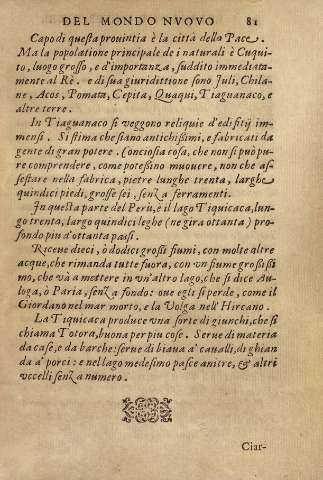 DEL MONDO NVOVO 81
Capo di questa prouintia è la città della Pace.
Ma la popolatione principale de i naturali è Cuqui-
to, luogo grosso, e d'importanza, suddito immediata-
mente al Rè. e di sua giuridittione sono Juli, Chila-
ne, Acos, Pomata, Cepita, Quaqui, Tiaguanaco, e
altre terre.
In Tiaguanaco si veggono reliquie d'edifitij im-
mensi. Si stima che siano antichissimi, e fabricati da
gente di gran potere. Conciosia cosa, che non si può pu-
re comprendere, come potessino muouere, non che as-
sestare nella fabrica, pietre lunghe trenta, larghe
quindici piedi, grosse sei, senza ferramenti.
In questa parte del Perù, è il lago Tiquicaca, lun-
go trenta, largo quindici leghe (ne gira ottanta) pro-
fondo più d'ottanta passi.
Riceue dieci, ò dodici grossi fiumi, con molte altre
acque, che rimanda tutte fuora, con vn fiume grossissi
mo, che và a mettere in vn'altro lago, che si dice Au-
loga, ò Paria, senza fondo: oue egli si perde, come il
Giordano nel mar morto, e la Volga nell'Hircano.
La Tiquicaca produce vna sorte di giunchi, che si
chiama Totora, buona per piu cose. Serue di materia
da case, e da barche: serue di biaua a' caualli, di ghian
da a' porci: e nel lago medesimo pasce anitre, & altri
vccelli senza numero.
Ciar-